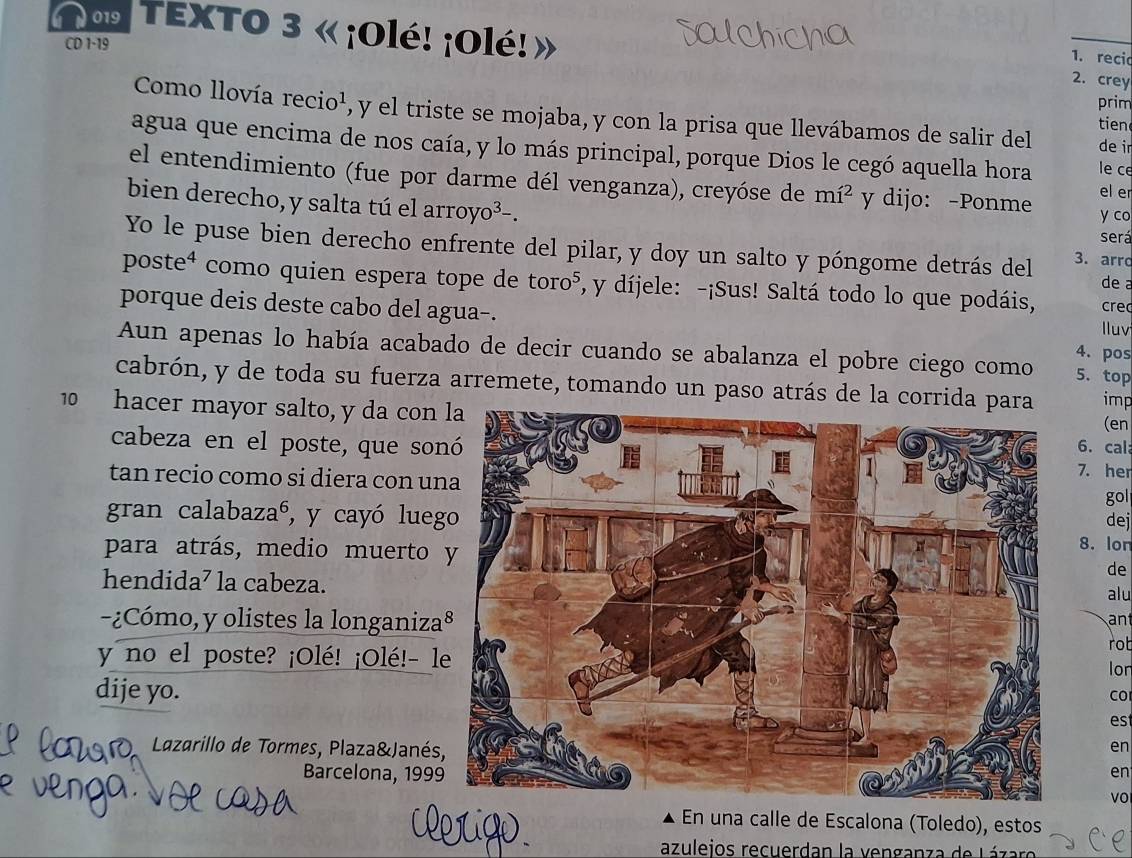 019 TEXTO 3 «¡Olé! ¡Olé!»
salchicha
CD 1-19
Como llovía recio¹, y el triste se mojaba, y con la prisa que llevábamos de salir del
agua que encima de nos caía, y lo más principal, porque Dios le cegó aquella hora
el entendimiento (fue por darme dél venganza), creyóse de mí² y dijo: -Ponme
bien derecho, y salta tú el arroyo³-.
Yo le puse bien derecho enfrente del pilar, y doy un salto y póngome detrás del
poste⁴ como quien espera tope de toro⁵, y díjele: -¡Sus! Saltá todo lo que podáis,
porque deis deste cabo del agua-.
Aun apenas lo había acabado de decir cuando se abalanza el pobre ciego como
cabrón, y de toda su fuerza arremete, tomando un paso atrás de la corrida para
10 hacer mayor salto, y da con la
cabeza en el poste, que sonó
tan recio como si diera con una
gran calabaza⁶, y cayó luego
para atrás, medio muerto y
hendida⁷ la cabeza.
-¿Cómo, y olistes la longaniza⁸
y no el poste? ¡Olé! ¡Olé!- le
dije yo.
Lazarillo de Tormes, Plaza&Janés,
Barcelona, 1999
lazaro
e venga. se casa
clerigo.
▲ En una calle de Escalona (Toledo), estos
azulejos recuerdan la venganza de Lázaro
1. recio
2. crey
prim
tien
de ir
le ce
el en
y co
será
3. arro
de a
cred
lluv
4. pos
5. top
imp
(en
6. cala
7. hen
gol
dej
8. lon
de
alu
ant
rob
lon
con
est
en
en
vo